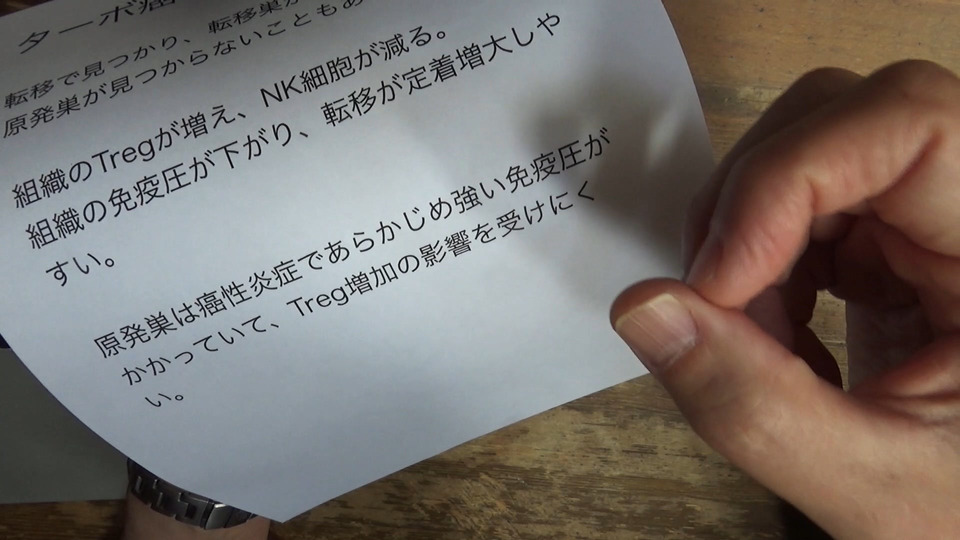 ターボ癌
転移で見つかり、転移巣が
原発巣が見つからないこともあ
組織のTregが増え、NK細胞が減る。
組織の免疫圧が下がり、転移が定着増大しや
すい。
原発巣は癌性炎症であらかじめ強い免疫圧が
かかっていて、Treg増加の影響を受けにく
い。